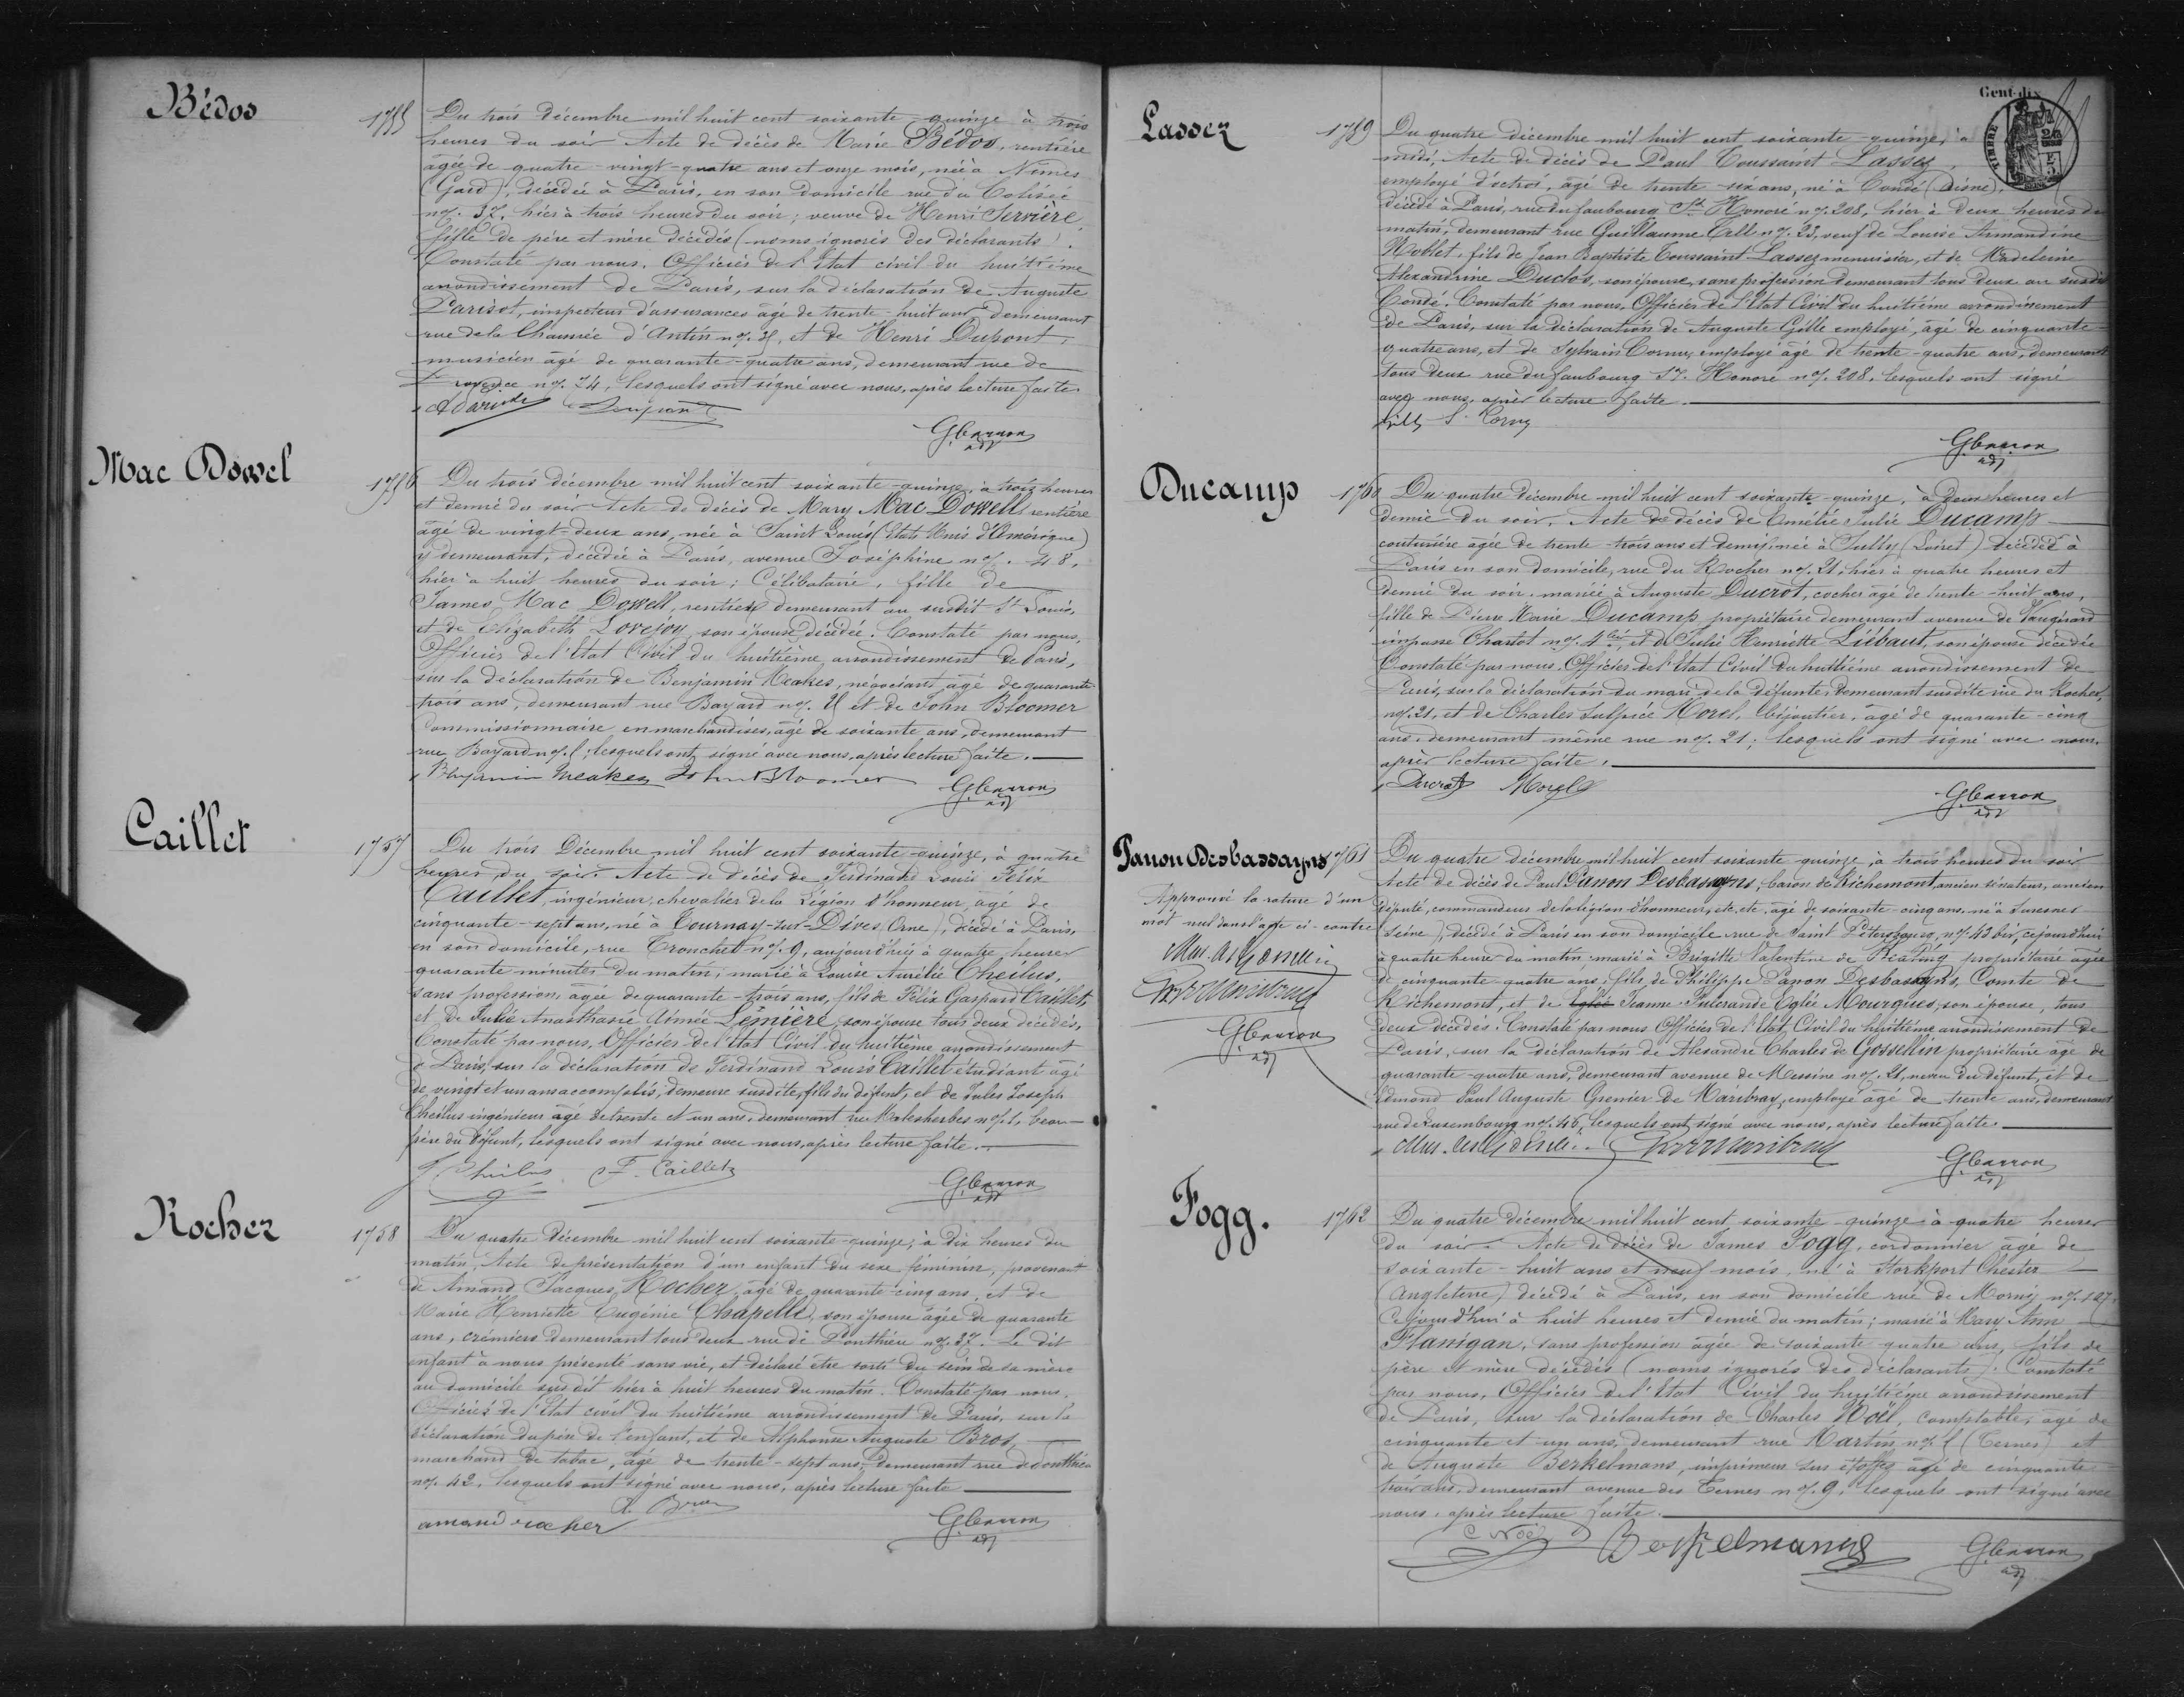 Bédos
1755
Du trois décembre mil huit cent soixante-quinze à trois
heures du soir Acte de décès de Marie Bédos, rentière
âgée de quatre-vingt-quatre ans et onze mois, née à Nimes
(Gard), décédée à Paris, en son domicile rue du Colisée
no. 37, hier à trois heures du soir; veuve de Henri Servière,
fille de père et mère décédés (noms ignorés des déclarants).
Constaté par nous, Officier de l'Etat civil du huitième
arrondissement de Paris, sur la déclaration de Auguste
Parisot, inspecteur d'assurances âgé de trente-huit ans demeurant
rue de la Chaussée d'Antin no. et de Henri Dupont,
musicien âgé de quarante-quatre ans, demeurant rue de
Provence no. 74, lesquels ont signé avec nous, après lecture faite.
Dupont
G. Carron
adj
Mac Dowel
1756
Du trois décembre mil huit cent soixante-quinze, à trois heures
et demie du soir Acte de décès de Mary Mac Dowell rentière
âgé de vingt-deux ans, née à Saint Louis (Etats Unis d'Amérique)
y demeurant, décédée à Paris, avenue Joséphine no. 48,
hier à huit heures du soir; Célibataire, fille de
James Mac Dowell, rentier demeurant au susdit St Louis,
et de Elizabeth Lovejoy, son épouse décédée. Constaté par nous,
Officier de l'Etat Civil du huitième arrondissement de Paris,
sur la déclaration de Benjamin Meakes, négociant, âgé de quarante-
trois ans, demeurant rue Bayard no. et de John Bloomer
Commissionnaire en marchandises, âgé de soixante ans, demeurant
rue Bayard no. lesquels ont signé avec nous, après lecture faite.
Benjamin Meakes John Bloomer
G. Carron
adj
Caillet
1757
Du trois Décembre mil huit cent soixante-quinze, à quatre
heures du soir. Acte de décès de Ferdinand Louis Félix
Caillet, ingénieur, chevalier de la Légion d'honneur, âgé de
cinquante-sept ans, né à Tournay-sur-Dives (Orne), décédé à Paris,
en son domicile, rue Tronchet no. 9, aujourd'hui à quatre heures
quarante minutes du matin; marié à Louise Aurélie Cheilus,
sans profession, âgée de quarante-trois ans, fils de Félix Gaspard Caillet,
et de Julie Anasthasie Aimée Lemière, son épouse tous deux décédés,
Constaté par nous, Officier de l'Etat Civil du huitième arrondissement
de Paris, sur la déclaration de Ferdinand Louis Caillet étudiant âgé
de vingt et un ans accomplis, demeure susdite, fils du défunt, et de Jules Joseph
Cheilus ingénieur âgé de trente et un ans, demeurant rue Malesherbes no. 1, beau-
frère du défunt, lesquels ont signé avec nous, après lecture faite.
J. Cheilus F. Caillet
G. Carron
adj
Rocher
1758
Du quatre décembre mil huit cent soixante-quinze, à dix heures du
matin, Acte de présentation d'un enfant du sexe féminin, provenant
de Amand Jacques Rocher, âgé de quarante-cinq ans, et de
Marie Henriette Eugénie Chapelle, son épouse âgée de quarante
ans, crémiers demeurant tous deux rue de Ponthieu no. 27. Le dit
enfant à nous présenté sans vie, et déclaré être sorti du sein de sa mère
au domicile susdit hier à huit heures du matin. Constaté par nous,
Officier de l'Etat civil du huitième arrondissement de Paris, sur la
déclaration du père de l'enfant, et de Alphonse Auguste Bros,
marchand de tabac, âgé de trente-sept ans, demeurant rue de Ponthieu
no. 42, lesquels ont signé avec nous, après lecture faite
A. Bros
amand rocher
G. Carron
adj
Cent-dix
TIMBRE
Lassez
1759
Du quatre décembre mil huit cent soixante-quinze, à
midi, Acte de décès de Paul Toussaint Lassez,
employé d'octroi, âgé de trente-six ans, né à Condé (Aisne),
décédé à Paris, rue du faubourg St Honoré no. 208, hier à deux heures du
matin, demeurant rue Guillaume Tell no. 23, veuf de Louise Armandine
Noblet, fils de Jean Baptiste Toussaint Lassez menuisier, et de Madeleine
Alexandrine Duclos, son épouse, sans profession demeurant tous deux au susdit
Condé. Constaté par nous, Officier de l'Etat Civil du huitième arrondissement
de Paris, sur la déclaration de Auguste Gille employé, âgé de cinquante-
quatre ans, et de Sylvain Cornu, employé âgé de trente-quatre ans, demeurant
tous deux rue du faubourg St. Honoré no. 208, lesquels ont signé
avec nous, après lecture faite.
Gille S. Cornu
G. Carron
adj
Ducamp
1760
Du quatre décembre mil huit cent soixante-quinze, à deux heures et
demie du soir, Acte de décès de Amélie Julie Ducamp
couturière âgée de trente-trois ans et demi, née à Sully (Loiret) décédée à
Paris en son domicile, rue du Rocher no. 21, hier à quatre heures et
demie du soir, mariée à Auguste Ducrot, cocher âgé de trente-huit ans,
fille de Pierre Marie Ducamp propriétaire demeurant avenue de Vaugirard
impasse Chartot no. 4 et de Julie Henriette Liébaut, son épouse décédée
Constaté par nous, Officier de l'Etat Civil du huitième arrondissement de
Paris, sur la déclaration du mari de la défunte, demeurant susdite rue du Rocher,
no. 21, et de Charles Sulpice Morel, bijoutier, âgé de quarante-cinq
ans, demeurant même rue no. 21; lesquels ont signé avec nous,
après lecture faite.
Ducrot Morel
G. Carron
adj
Panon Desbassayns
1761
Approuvé la rature d'un
mot nul dans l'acte ci-contre
G. Carron
adj
Du quatre décembre mil huit cent soixante-quinze, à trois heures du soir
Acte de décès de Paul Panon Desbassayns, baron de Richemont, ancien sénateur, ancien
député, commandeur de la légion d'honneur, etc, etc, âgé de soixante-cinq ans, né à Suresnes
(Seine), décédé à Paris en son domicile rue de Saint Pétersbourg, no. 43 bis, cejourd'hui
à quatre heure du matin, marié à Brigitte Valentine de propriétaire âgée
de cinquante-quatre ans, fils de Philippe Panon Desbassayns, Comte de
Richemont, et de Eglée Jeanne Fulcrande Eglée Mourgues, son épouse, tous
deux décédés. Constaté par nous Officier de l'Etat Civil du huitième arrondissement de
Paris, sur la déclaration de Alexandre Charles de Gossellin propriétaire âgé de
quarante-quatre ans, demeurant avenue de Messine no. 21, neveu du défunt, et de
Edmond Paul Auguste Grenier de Maribray, employé âgé de trente ans, demeurant
rue de Luxembourg no. 46, lesquels ont signé avec nous, après lecture faite.
G. Carron
adj
Fogg.
1762
Du quatre décembre mil huit cent soixante-quinze à quatre heures
du soir. Acte de décès de James Fogg, cordonnier âgé de
soixante-huit ans et neuf mois, né à Storkport Chester
(Angleterre) décédé à Paris, en son domicile rue de Morny no. 127.
Cejourd'hui à huit heures et demie du matin; marié à Mary Ann
Flanigan, sans profession âgée de soixante-quatre ans, fils de
père et mère décédés (noms ignorés des déclarants). Constaté
par nous, Officier de l'Etat Civil du huitième arrondissement
de Paris, sur la déclaration de Charles Noël, comptable, âgé de
cinquante et un ans, demeurant rue Martin no. (Ternes) et
de Auguste Berkelmans, imprimeur sur étoffes âgé de cinquante-
trois ans, demeurant avenue des Ternes no. 9, lesquels ont signé avec
nous, après lecture faite.
C Noël Berkelmans
G. Carron
adj